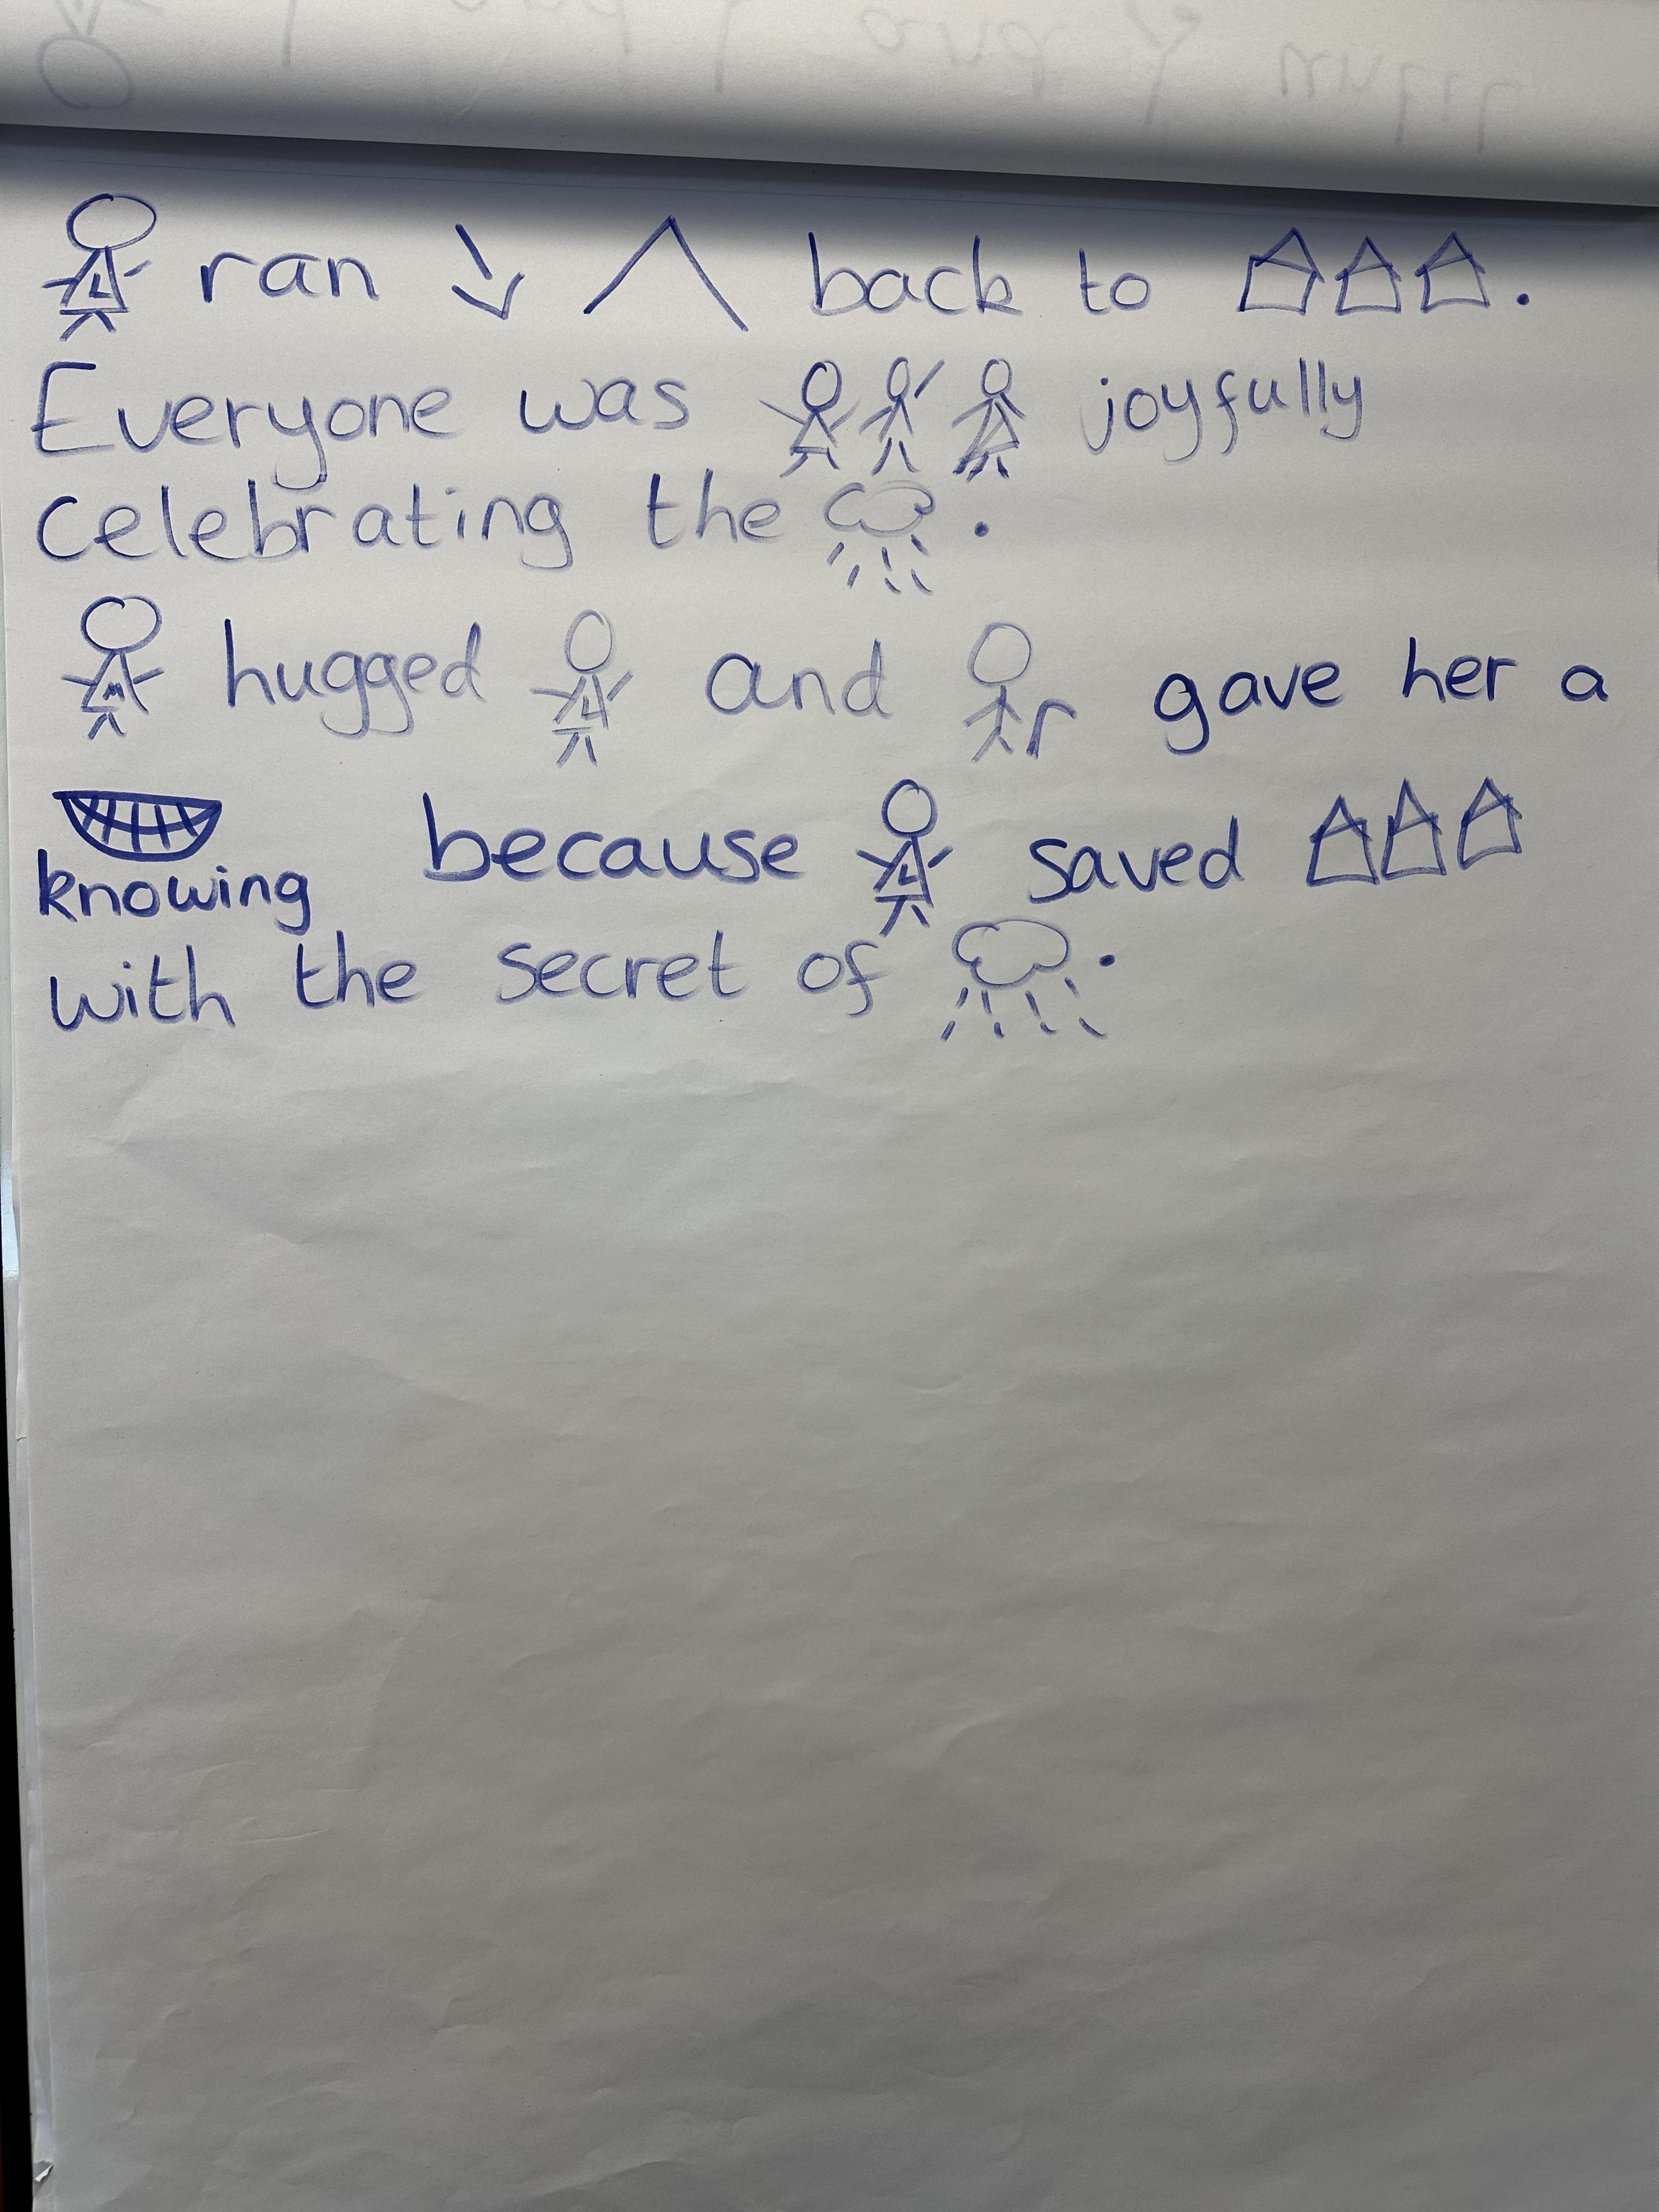 L ran back to .
Everyone was joyfully
celebrating the .
M hugged L and gave her a
knowing because L saved
with the secret of .